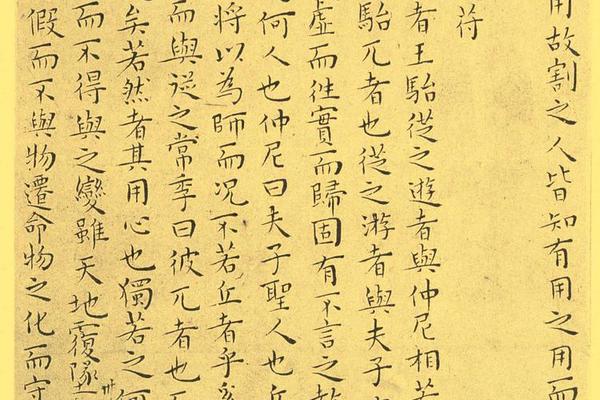 用故割之人皆知有用之用而
苻
者王駘従之遊者與仲尼相若
駘兀者也従之游者與夫子
虛而往實而歸固有不言之教
何人也仲尼曰夫子聖人也丘
將以為師而况不若丘者乎奚
而與従之常季曰彼兀者也
矣若然者其用心也獨若之何
而不得與之變雖天地覆墜
假而不與物遷命物之化而守